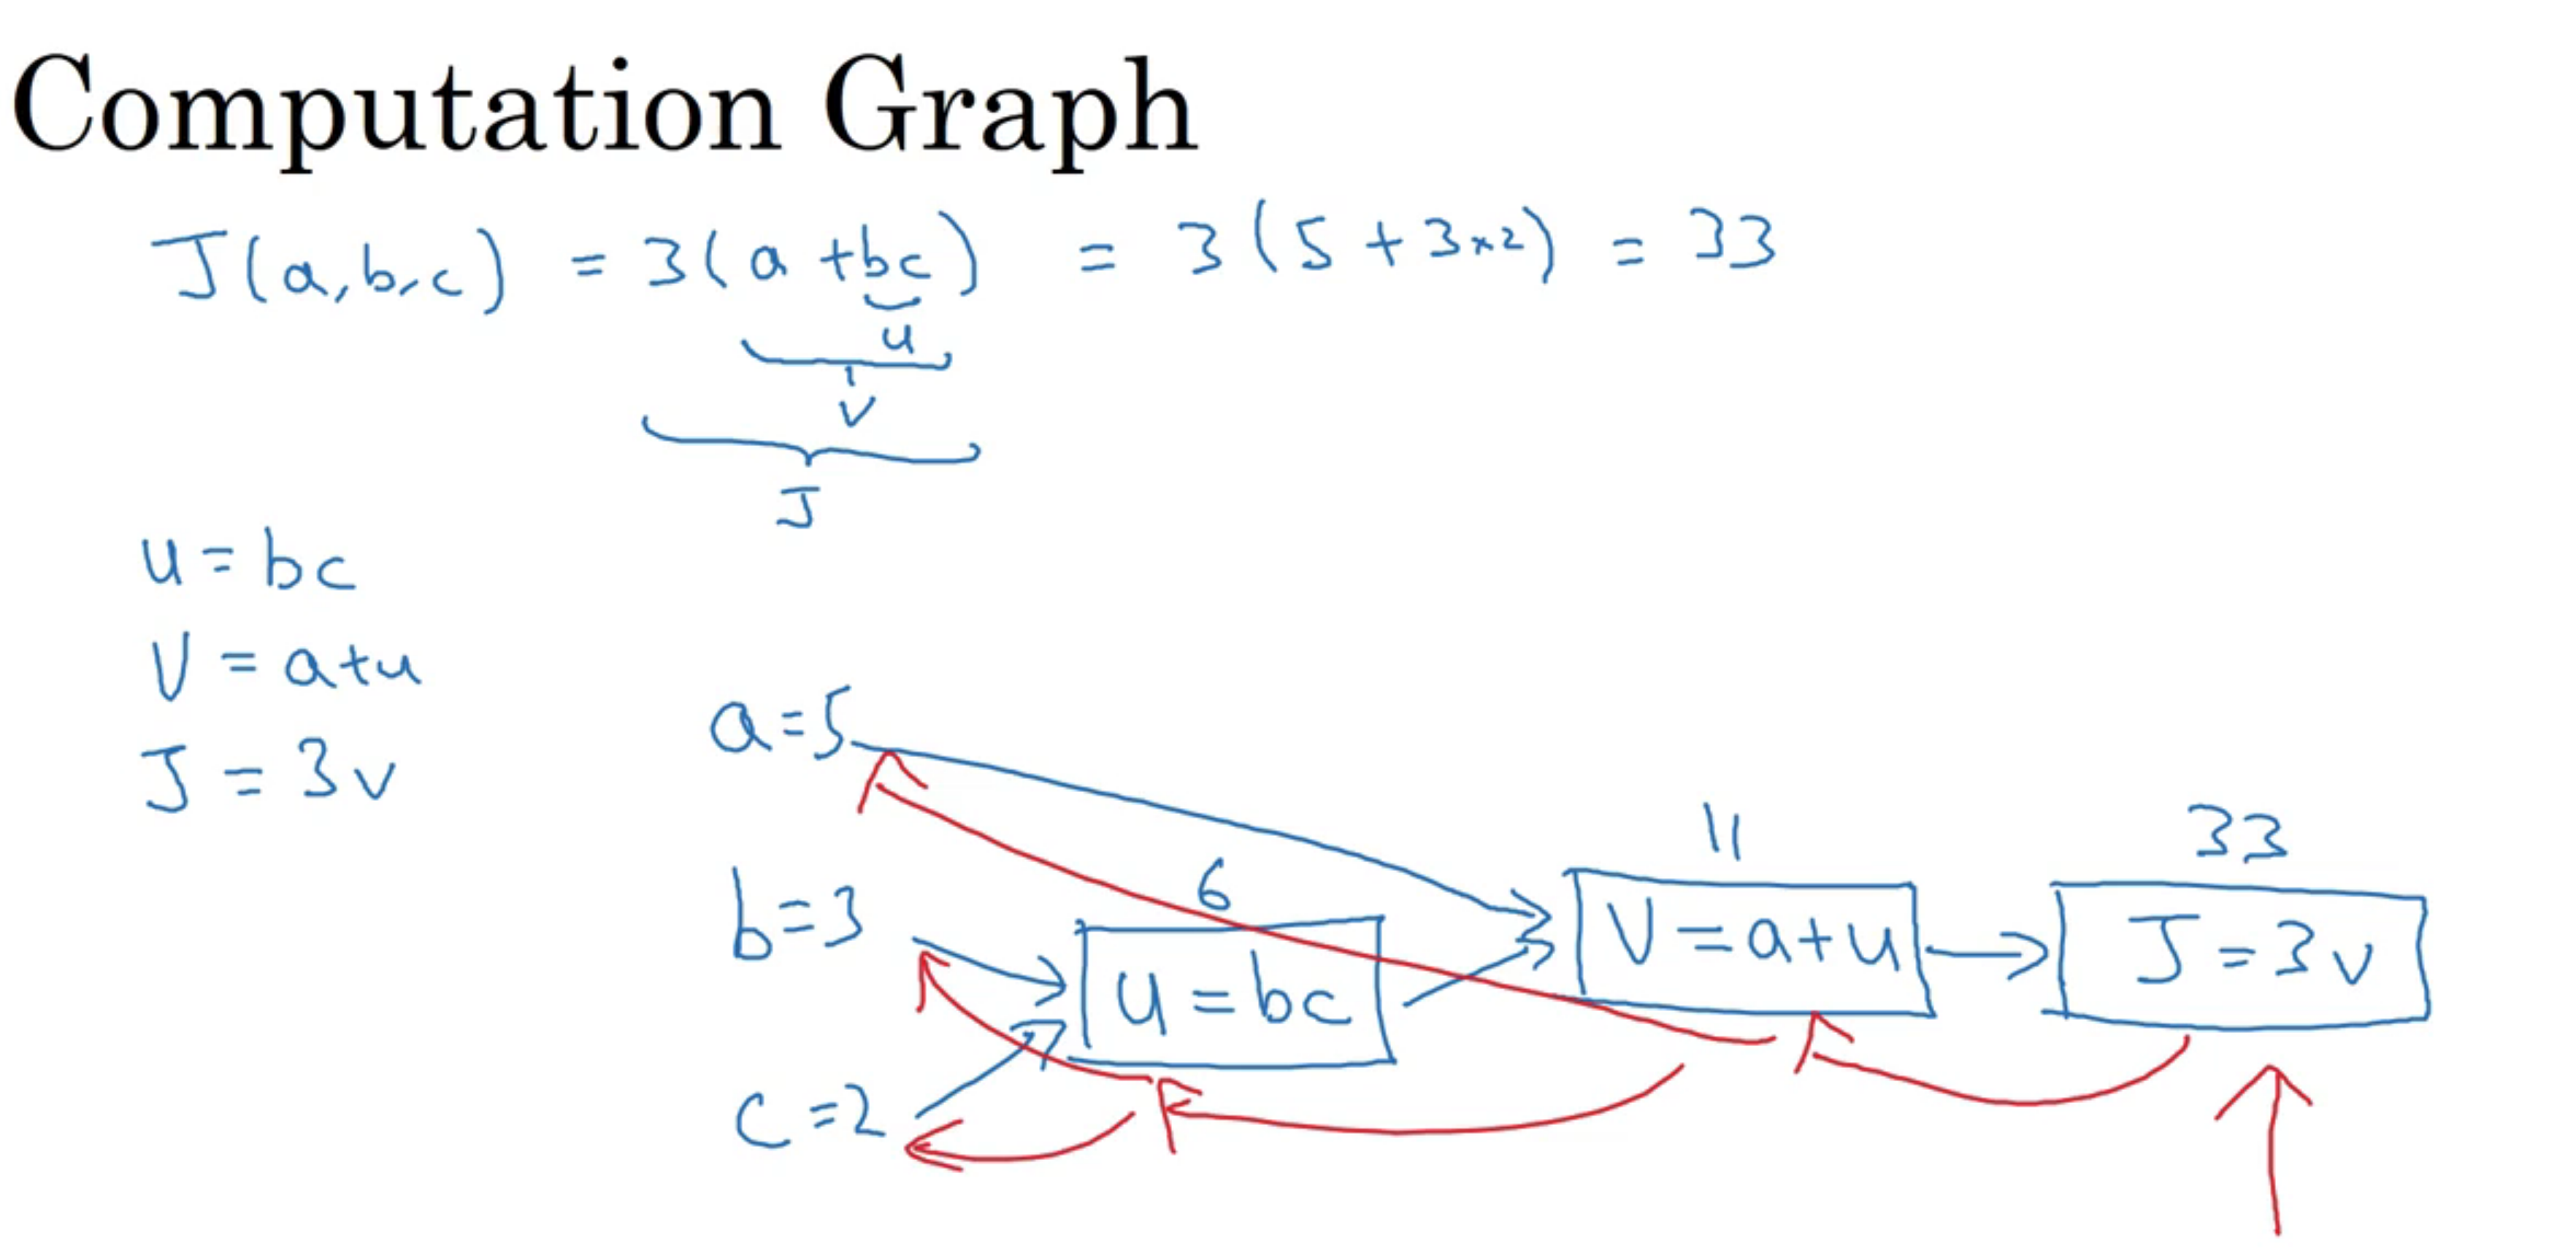 Computation Graph
J(a,b,c) = 3(a+bc) = 3(5+3×2) = 33
u
v
J
u = bc
v = a+u
J = 3v
a=5
11
33
6
b=3
u = bc
v = a+u
J = 3v
c=2